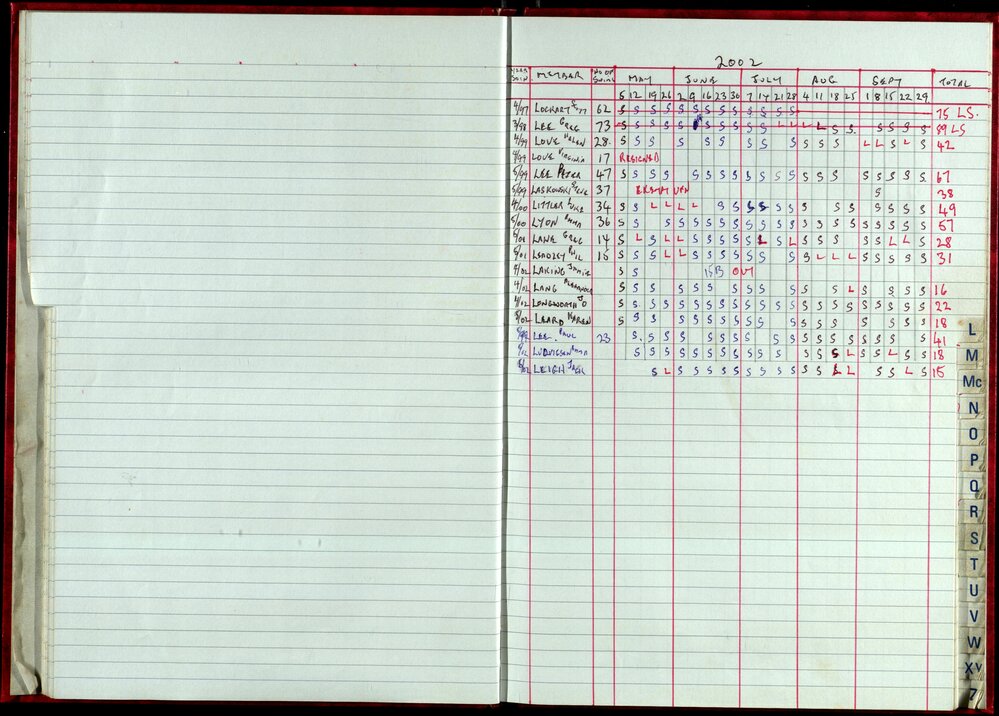 2002
MEMBER NO OF SWIMS MAY JUNE JULY AUG SEPT TOTAL
5 12 19 26 2 9 16 23 30 7 14 21 28 4 11 18 25 1 8 15 22 29
4/97 LOCKART 62 S S S S S S S S S S S S S 75 LS.
3/98 LEE GREG 73 S S S S S S S S S S S L L L L S S S S S S 89 LS
4/99 LOVE HELEN 28 S S S S S S S S S S S S S L L S L S 42
4/99 LOVE VIRGINIA 17 RESIGNED
5/99 LEE PETER 47 S S S S S S S S S S S S S S S S S S S S 67
5/99 LASKOWSKI 37 EXEMPTION S 38
4/00 LITTLER LUKE 34 S S L L L L S S S S S S S S S S S S S 49
5/00 LYON EMMA 36 S S S S S S S S S S S S S S S S S S S S S 57
LANE GREG 14 S L S L L S S S S S L S L S S S S S L L S 28
5/01 LEADLEY PHIL 15 S S S L L S S S S S S S S L L L S S S S S 31
4/02 LAKING JAMIE S S 15B OUT
4/02 LANG ALEXANDER S S S S S S S S S S S S L S S S S 16
4/02 LONGWORTH JO S S S S S S S S S S S S S S S S S S S S S S 22
5/02 LEARD KAREN S S S S S S S S S S S S S S S S S S 18
LEE PAUL 23 S S S S S S S S S S S S S S S S S S 41
LUDVIGSEN EMMA S S S S S S S S S S S S S S L S S L S S 18
LEIGH JACK S L S S S S S S S S S S L L S S L S 15
L
M
Mc
N
O
P
Q
R
S
T
U
V
W
XY
Z